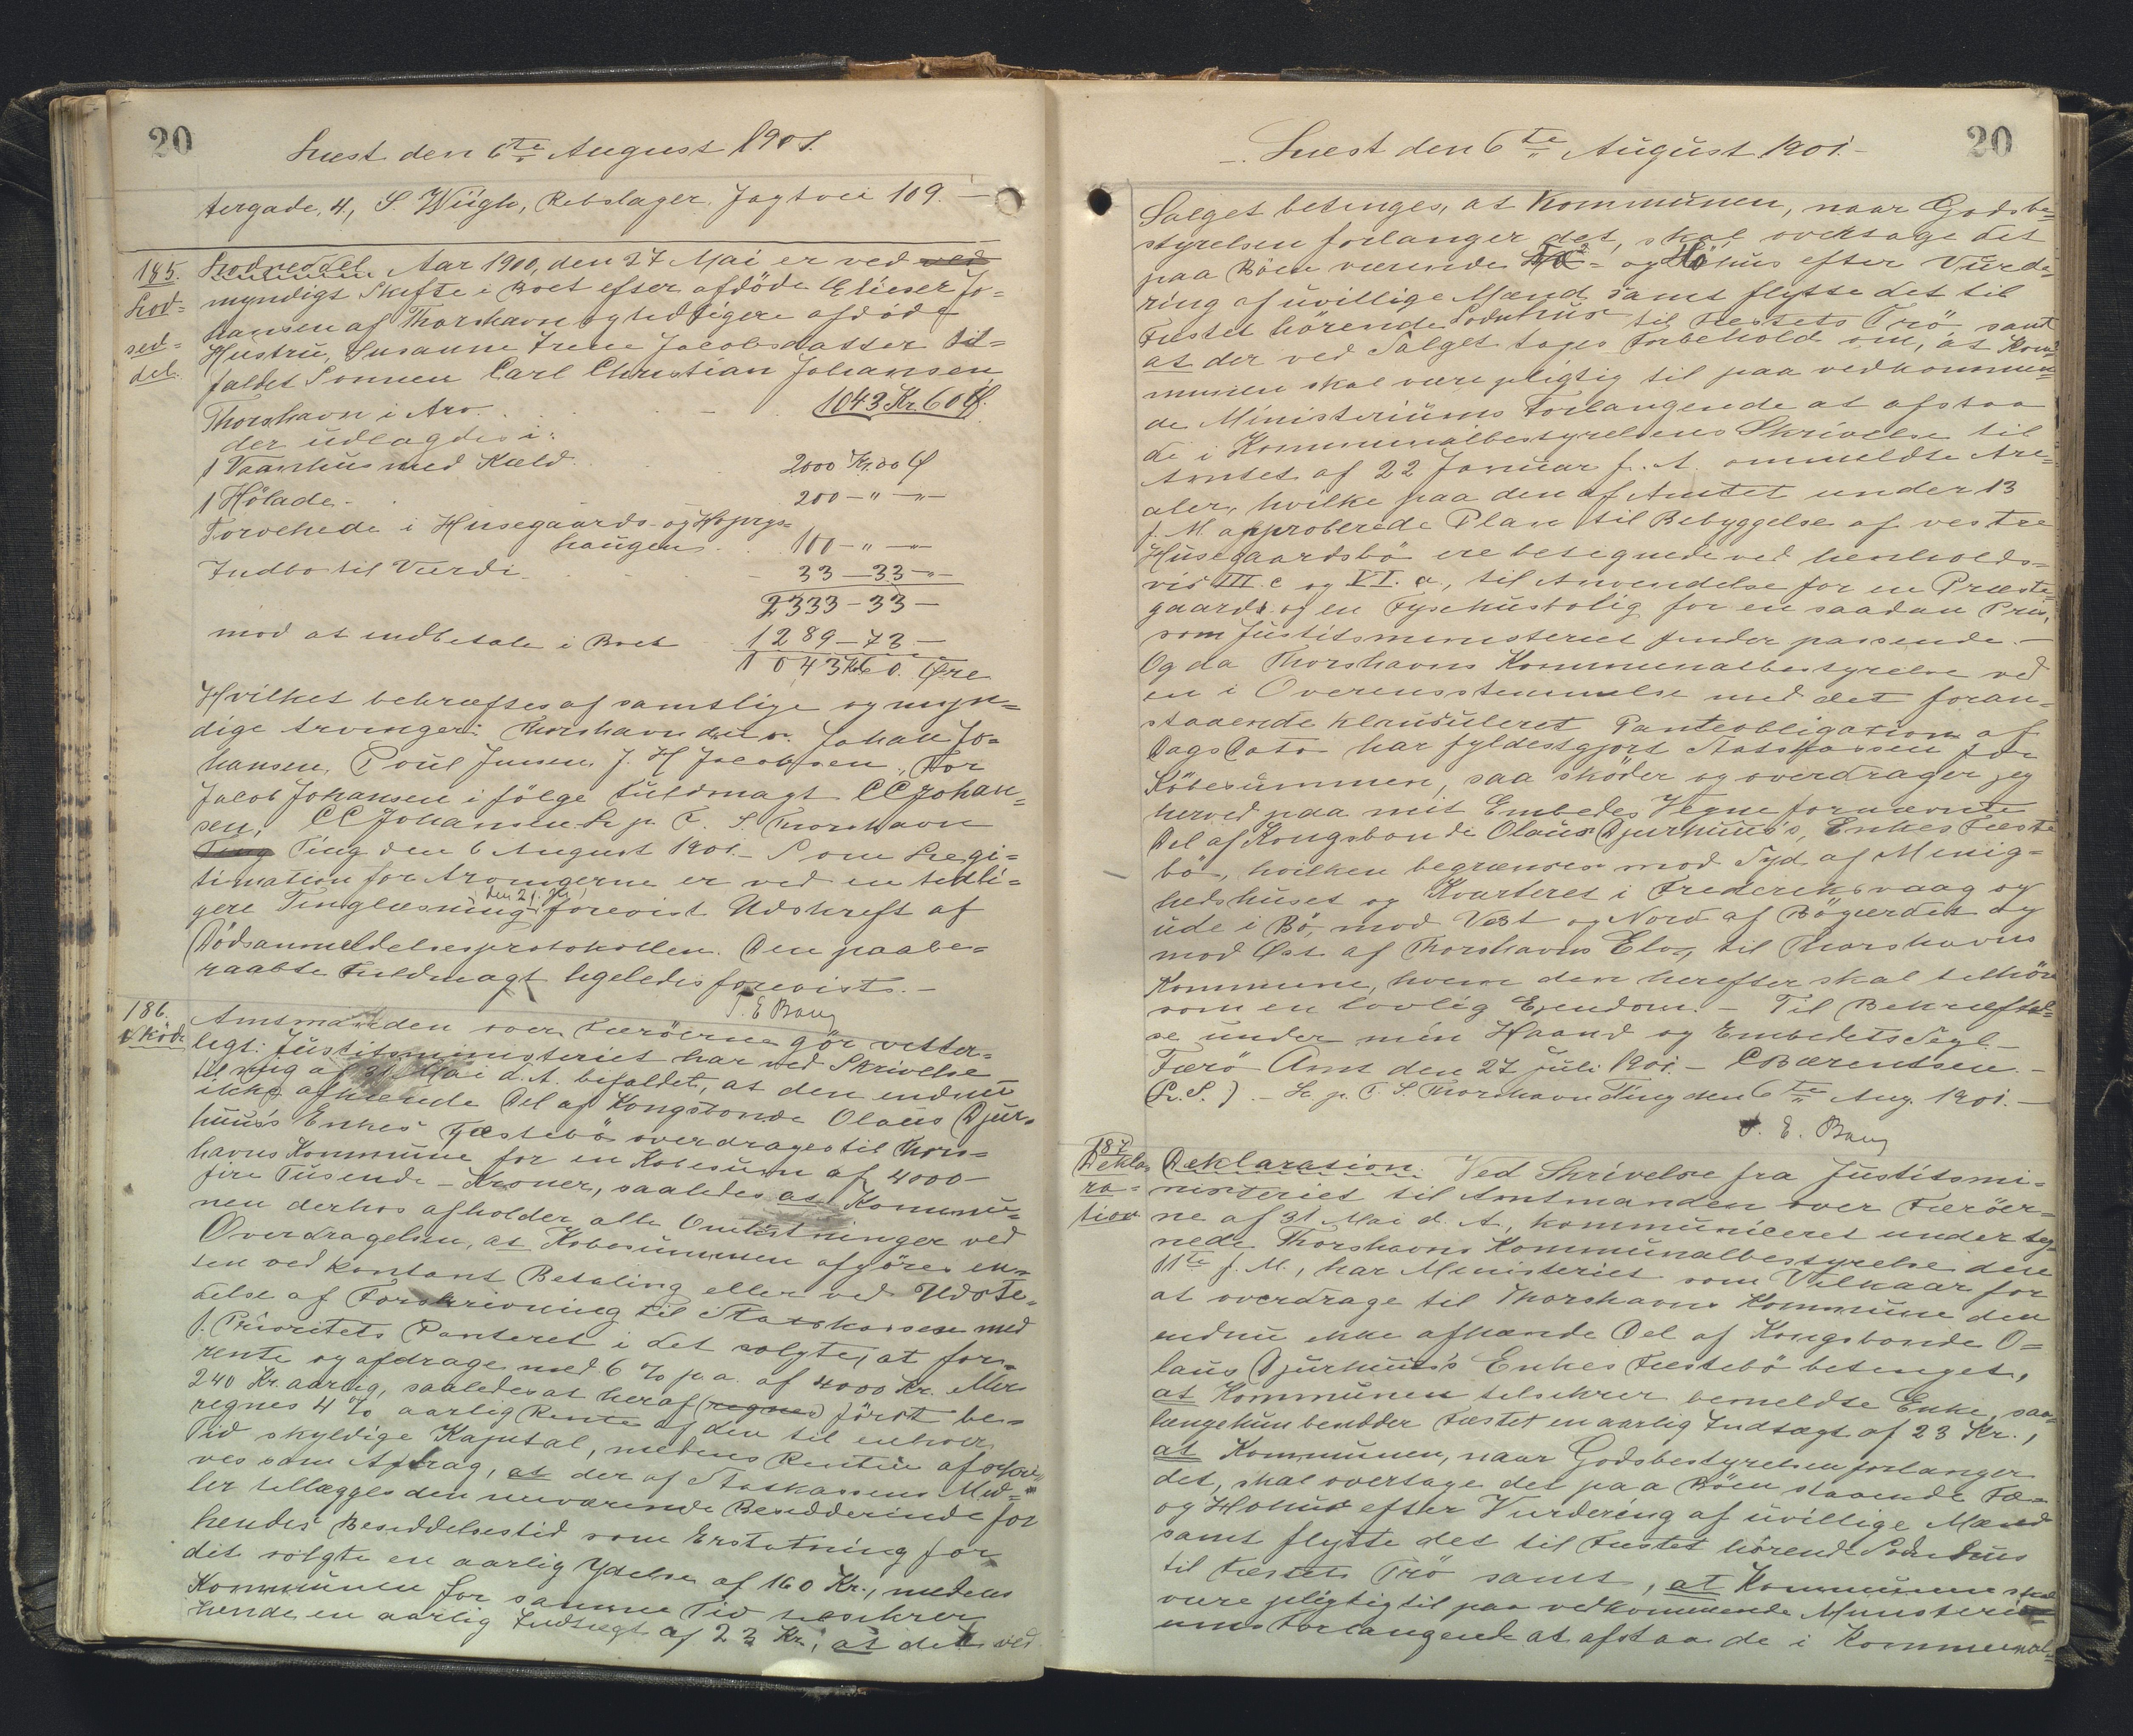 20
Læst den 6te August 1901.
tergade, 4, S. Wiigh, Rebslager Jagtvei 109. —
185. Lodseddel. Aar 1900, den 27 Mai er ved ved
Lod= myndigt Skifte i Boet efter afdöde Elieser Jo=
hansen af Thorshavn og tidligere afdöde
sed= Hustru, Susanne Irene Jacobsdatter til=
del. faldet Sönnen Carl Christian Johansen
Thorshavn i Arv. 1043 Kr. 60 Ø.
der udlagdes i:
1 Vaanhus med Kæld 2000 Kr. 00 Ø
1 Hölade 200 — " — " —
Törvehede i Husegaards- og Hoyrys=
haugen 100 — " — " —
Indbo til Værdi 33 — 33 — " —
2333 — 33 —
mod at indbetale i Boet 1289 — 73 —
1043 Kr. 60. Øre
Hvilket bekræftes af samtlige og myn=
dige Arvinger: Thorshavn d. u. s. Johan Jo=
hansen, Poul Jensen, J. H. Jacobsen, For
Jacob Johansen i fölge Fuldmagt CC Johan=
sen, CC Johansen L. p. T. S. Thorshavn
Ting Ting den 6 August 1901. — Som Legi=
timation for Arvingerne er ved en tidli=
den 21.
gere Tinglæsning forevist Udskrift af
Dödsanmeldelsesprotokollen. Den paabe=
raabte Fuldmagt ligeledes forevist. —
S. E. Bang
186. Amtmanden over Færöerne gör vitter=
Sköde ligt: Justitsministeriet har ved Skrivelse
til mig af 31 Mai d. A. bifaldet, at den endnu
ikke afhændede Del af Kongsbonde Olaus Djur=
huus's Enkes Fæstebö overdrages til Thors=
havns Kommune for en Köbesum af 4000 —
fire Tusende — Kroner, saaledes at Kommu=
nen derhos afholder alle Omkostninger ved
Overdragelsen, at Köbesummen afgöres en=
ten ved kontant Betaling eller ved Udste=
delse af Forskrivning til Statskassen med
1. Prioritets Panteret i det solgte, at for=
rente og afdrage med 6 % p. a. af 4000 Kr. eller
240 Kr. aarlig, saaledes at heraf (regnes) först be=
regnes 4 % aarlig Rente af den til enhver
Tid skyldige Kapital, medens Resten afskri=
ves som Afdrag, at der af Statskassens Mid=
ler tillægges den nuværende Besidderinde for
hendes Besiddelsestid som Erstatning for
det solgte en aarlig Ydelse af 160 Kr., medens
Kommunen for samme Tid tilsikrer
hende en aarlig Indtægt af 23 Kr., at det ved
20
— Læst den 6te August 1901. —
Salget betinges, at Kommunen, naar Godsbe=
styrelsen forlanger det, skal overtage det
paa Böen værende Fæ= og Höhus efter Vurde=
ring af uvillige Mænd samt flytte det til
Fæstet hörende Sodnhus til Fæstets Trö, samt
at der ved Salget tages Forbehold om, at Kom=
munen skal være pligtig til paa vedkommen=
de Ministeriums Forlangende at afstaa
de i Kommunalbestyrelsens Skrivelse til
Amtet af 22 Januar f. A. ommeldte Are=
aler, hvilke paa den af Amtet under 13
f. M. approberede Plan til Bebyggelse af vestre
Husegaardsbö ere betegnede ved henholds=
vis III. c og VI. a, til Anvendelse for en Præste=
gaard og en Fysikusbolig for en saadan Pris,
som Justitsministeriet finder passende. —
Og da Thorshavns Kommunalbestyrelse ved
en i Overensstemmelse med det foran=
staaende klausuleret Panteobligation af
Dags Dato har fyldestgjort Statskassen for
Köbesummen, saa sköder og overdrager jeg
herved paa mit Embedes Vegne fornævnte
Del af Kongsbonde Olaus Djurhuus's Enkes Fæste=
bö, hvilken begrænses mod Syd af Menig=
hedshuset og Kvarteret i Frederiksvaag og
ude i Bö, mod Vest og Nord af Bögærdet og
mod Øst af Thorshavns Elv, til Thorshavns
Kommune, hvem den herefter skal tilhöre
som en lovlig Ejendom. — Til Bekræftel=
se under min Haand og Embedets Segl. —
Færö Amt den 27 Juli 1901. — C Bærentsen. —
(L. S.). — L. p. T. S. Thorshavn Ting den 6te Aug. 1901. —
S. E. Bang
187.
Dekla= Deklaration. Ved Skrivelse fra Justitsmi=
ra= nisteriet til Amtmanden over Færöer=
tion ne af 31 Mai d. A., kommuniceret underteg=
nede Thorshavns Kommunalbestyrelse den
11te f. M., har Ministeriet som Vilkaar for
at overdrage til Thorshavns Kommune den
endnu ikke afhændede Del af Kongsbonde O=
laus Djurhuus's Enkes Fæstebö betinget,
at Kommunen tilsikrer bemeldte Enke, saa=
længe hun besidder Fæstet en aarlig Indtægt af 23 Kr.,
at Kommunen, naar Godsbestyrelsen forlanger
det, skal overtage det paa Böen staaende Fæ=
og Höhus efter Vurdering af uvillige Mænd
samt flytte det til Fæstet hörende Sodnhus
til Fæstets Trö samt, at Kommunen skal
være pligtig til paa vedkommende Ministeri=
ums Forlangende at afstaa de i Kommunal=